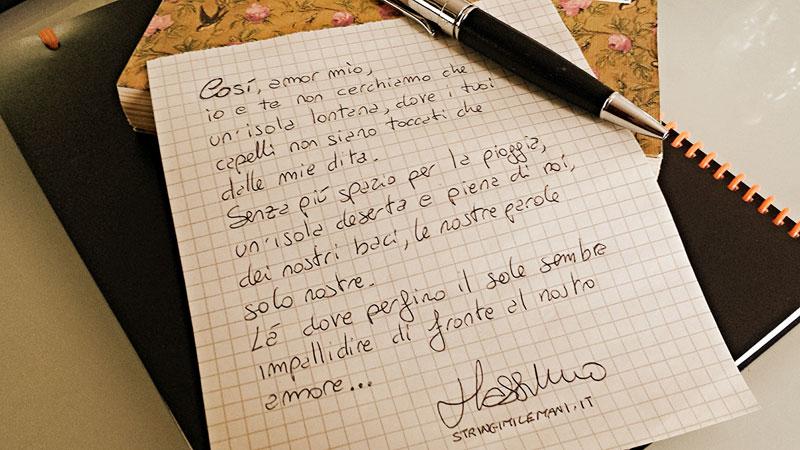 Così, amor mio,
io e te non cerchiamo che
un'isola lontana, dove i tuoi
capelli non siano toccati che
dalle mie dita.
Senza più spazio per la pioggia,
un'isola deserta e piena di noi,
dei nostri baci, le nostre parole
solo nostre.
Là dove perfino il sole sembra
impallidire di fronte al nostro
amore...
Massimo
STRINGIMILEMANI.IT